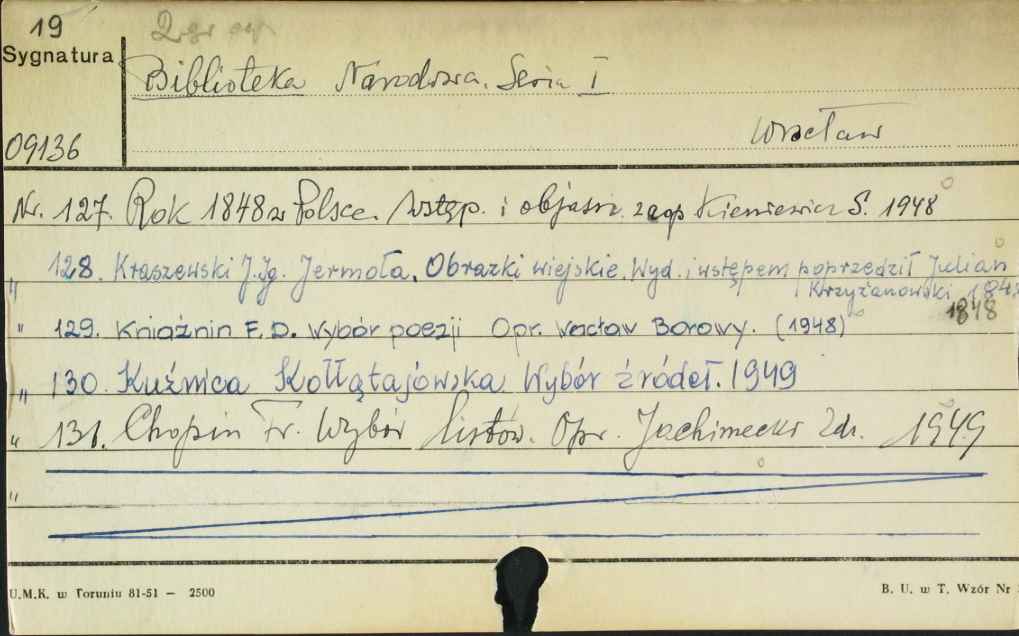 19
Sygnatura
09136
Biblioteka Narodowa. Seria I
Wrocław
Nr. 127. Rok 1848 w Polsce. Wstęp. i objaśn. zaop Kieniewicz S. 1948
" 128. Kraszewski J.Ig. Jermoła. Obrazki wiejskie. Wyd. i wstępem poprzedził Julian
Krzyżanowski 1948
1848
" 129. Kniaźnin F.D. Wybór poezji Opr. Wacław Borowy. (1948)
" 130. Kuźnica Kołłątajowska Wybór źródeł. 1949
" 131. Chopin Fr. Wybór listów. Opr. Jachimecki Zdz. 1949
"
U.M.K. w Toruniu 81-51 — 2500
B. U. w T. Wzór Nr